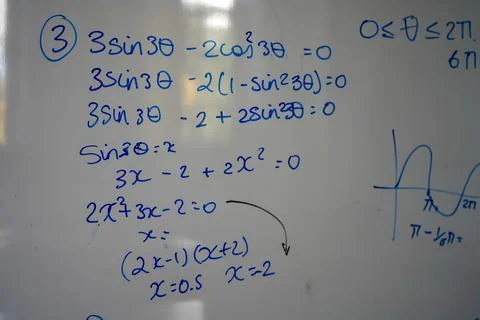 ③ 3sin3θ - 2cos²3θ = 0
3sin3θ - 2(1 - sin²3θ) = 0
3sin3θ - 2 + 2sin²3θ = 0
sin3θ = x
3x - 2 + 2x² = 0
2x² + 3x - 2 = 0
x =
(2x - 1)(x + 2)
x = 0.5 x = -2
0 ≤ θ ≤ 2π
6π
π 2π
π - ⅙π =